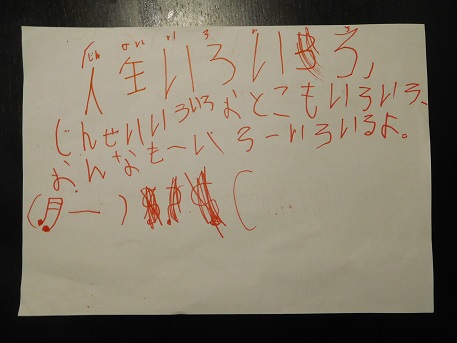 人生いろいろ、
じんせいいろいろおとこもいろいろ、
おんなもーいろーいろいるよ。
(♬ー)